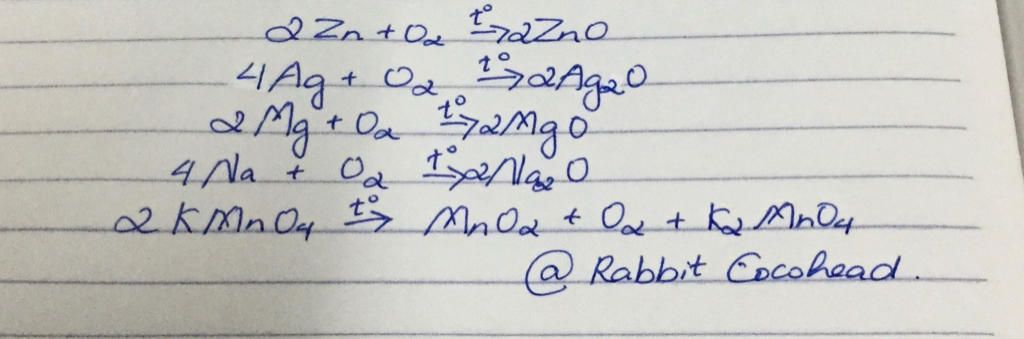 2Zn + O₂ t°→ 2ZnO
4Ag + O₂ t°→ 2Ag₂O
2Mg + O₂ t°→ 2MgO
4Na + O₂ t°→ 2Na₂O
2KMnO₄ t°→ MnO₂ + O₂ + K₂MnO₄
@ Rabbit Cocohead.